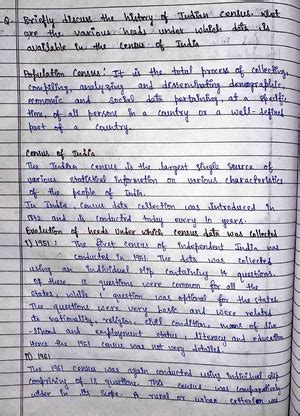 Q. Briefly discuss the history of Indian census. What
are the various heads under which data is
available in the census of India
Population Census: It is the total process of collecting,
compiling, analyzing and disseminating demographic,
economic and social data pertaining, at a specific
time, of all persons in a country or a well-defined
part of a country.
Census of India
The Indian Census is the largest single source of
various statistical information on various characteristics
of the people of India.
In India, Census data collection was introduced in
1872 and is conducted today every 10 years.
Evolution of heads under which census data was collected
1) 1951: The first census of independent India was
conducted in 1951. The data was collected
using an individual slip containing 14 questions.
Of these, 13 questions were common for all the
states, while 1 question was optional for the states
The questions were very basic and were related
to nationality, religion, civil condition, means of live
-lihood and employment status, literacy and education
Hence the 1951 census was not very detailed.
1961
The 1961 census was again conducted using individual slip
comprising of 12 questions. This census was comparatively
wider in its scope. A rural or urban criterion was